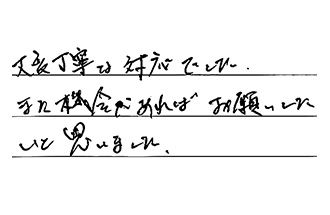 大変丁寧な対応でした.
また機会があればお願いした
いと思いました.